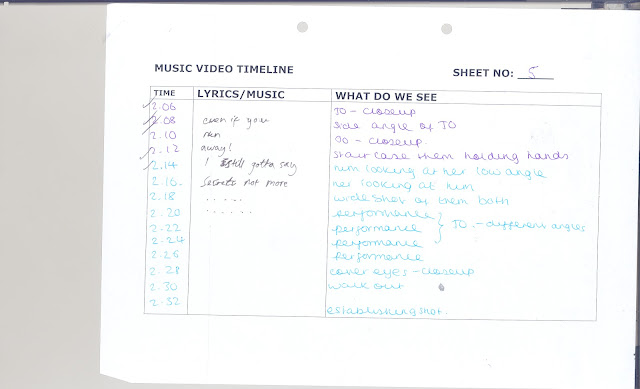 MUSIC VIDEO TIMELINE SHEET NO: 5
TIME LYRICS/MUSIC WHAT DO WE SEE
2.06 JO - closeup
2.08 even if you side angle of JO
2.10 run JO - closeup.
2.12 away! staircase them holding hands
2.14 I still gotta say him looking at her low angle
2.16. Secrets not more her looking at him
2.18 ..... wideshot of them both
2.20 ...... performance
2.22 performance } JO. - different angles
2.24 performance
2.26 performance
2.28 cover eyes - closeup
2.30 walk out
2.32 establishing shot.